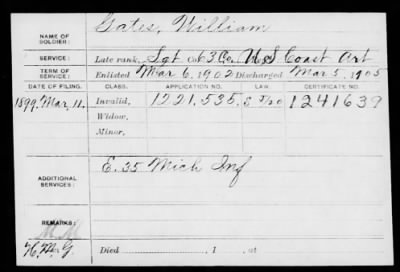 NAME OF SOLDIER: Gates, William
SERVICE: Late rank, Sgt Co. 63 Co., U.S. Coast Art
TERM OF SERVICE: Enlisted Mar 6, 1902 Discharged Mar 5, 1905
DATE OF FILING. CLASS. APPLICATION NO. LAW. CERTIFICATE NO.
1899. Mar, 11. Invalid, 1221.535. 1241639
Widow,
Minor,
ADDITIONAL SERVICES: E. 35 Mich Inf
REMARKS:
Died , 1 , at